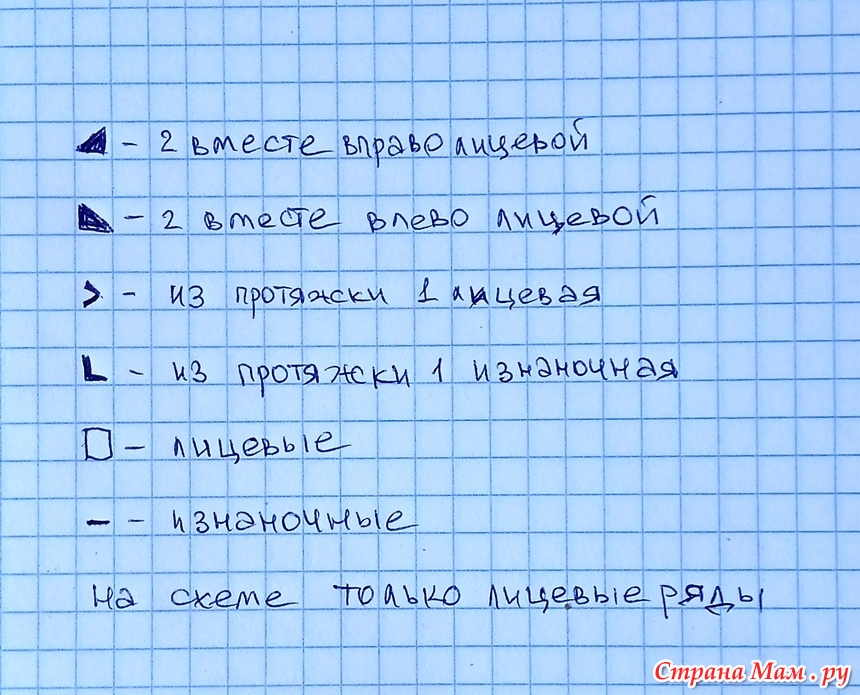 ◢ - 2 вместе вправо лицевой
◣ - 2 вместе влево лицевой
> - из протяжски 1 лицевая
L - из протяжски 1 изнаночная
□ - лицевые
– - изнаночные
на схеме только лицевые ряды
Страна Мам.ру